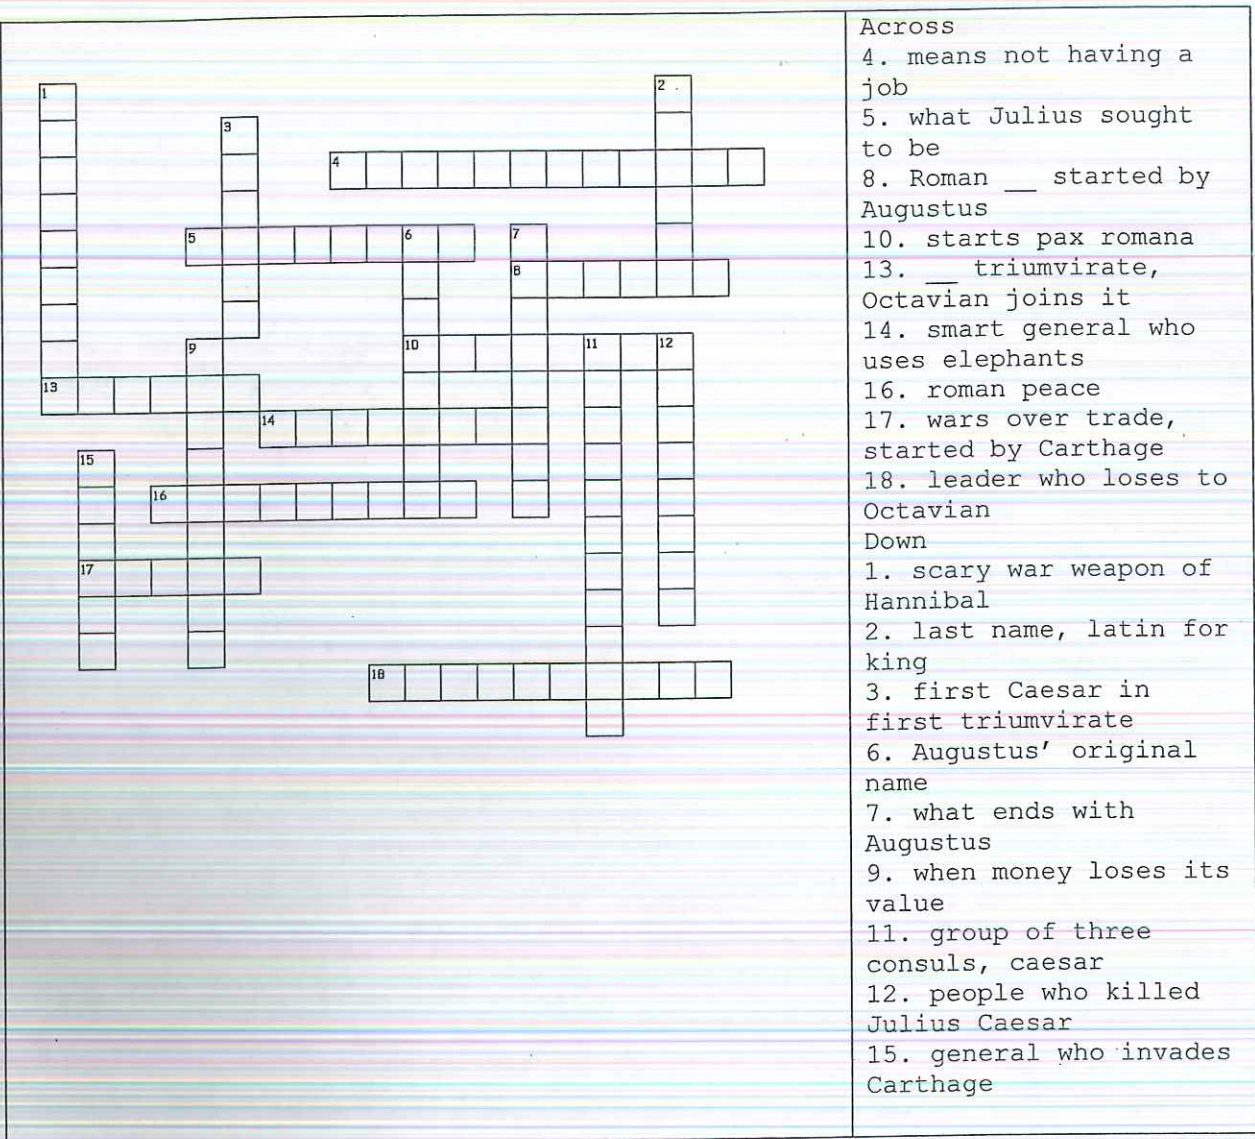 1
2
3
4
5
6
7
8
9
10
11
12
13
14
15
16
17
18
Across
4. means not having a
job
5. what Julius sought
to be
8. Roman __ started by
Augustus
10. starts pax romana
13. __ triumvirate,
Octavian joins it
14. smart general who
uses elephants
16. roman peace
17. wars over trade,
started by Carthage
18. leader who loses to
Octavian
Down
1. scary war weapon of
Hannibal
2. last name, latin for
king
3. first Caesar in
first triumvirate
6. Augustus' original
name
7. what ends with
Augustus
9. when money loses its
value
11. group of three
consuls, caesar
12. people who killed
Julius Caesar
15. general who invades
Carthage